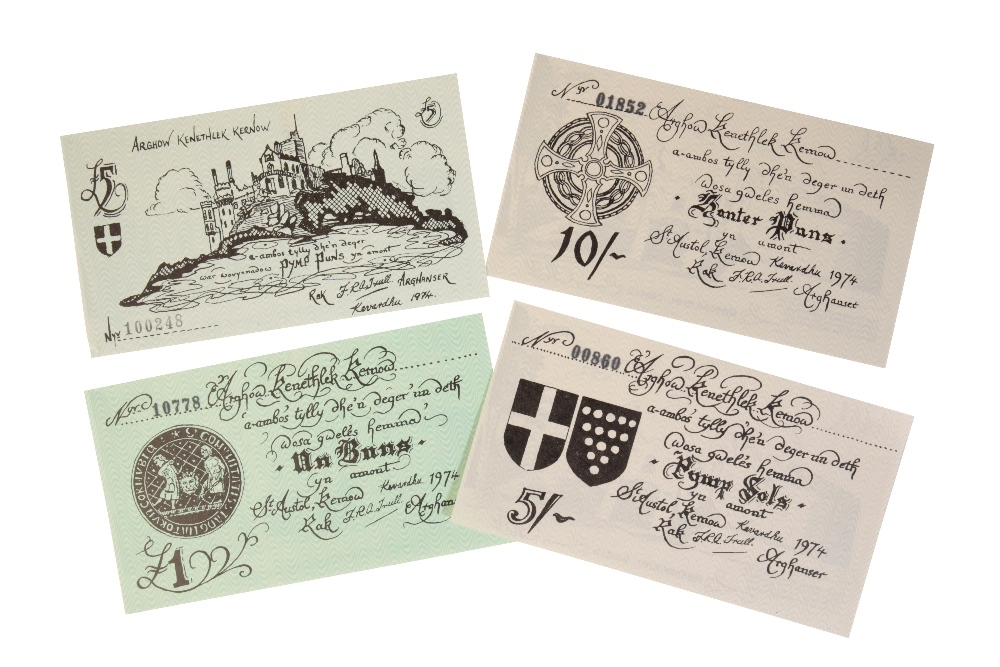 ARGHOW KENETHLEK KERNOW
£5
£5
a-ambos tylly dhe'n deger
war worynnadow PYMP PUNS yn amont
Rak F.R.A. Trull. ARGHANSER
Kevardhu 1974.
Nyv 100248
Nyv 01852
Arghow Kenethlek Kernow
a-ambos tylly dhe'n deger un deth
wosa gweles hemma
· Hanter Puns ·
yn amont
St Austol, Kernow Kevardhu 1974
Rak F.R.A. Trull. Arghanser
10/-
Nyv 10778
Arghow Kenethlek Kernow
a-ambos tylly dhe'n deger un deth
wosa gweles hemma
· Un Buns ·
yn amont
St Austol, Kernow Kevardhu 1974
Rak F.R.A. Trull. Arghan
£1
Nyv 00860
Arghow Kenethlek Kernow
a-ambos tylly dhe'n deger un deth
wosa gweles hemma
· Pymp Sols ·
yn amont
St Austol, Kernow Kevardhu 1974
Rak F.R.A. Trull.
Arghanser
5/-